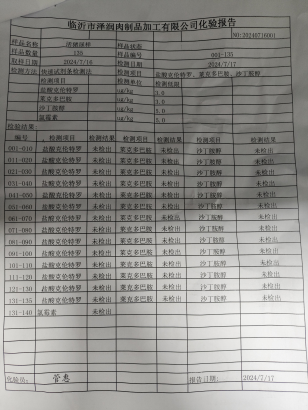 临沂市泽润肉制品加工有限公司化验报告
NO:20240716001
样品名称 活猪尿样 样品状态
样品数量 135 样品编号 001-135
取样日期 2024/7/16 检测日期 2024/7/17
检测方法 快速试剂条检测法 检测项目 盐酸克伦特罗、莱克多巴胺、沙丁胺醇
检测项目 检测单位 检测线限
盐酸克伦特罗 ug/kg 3.0
莱克多巴胺 ug/kg 3.0
沙丁胺醇 ug/kg 5.0
氯霉素 ug/kg
检验结果:
编号 检测项目 检测结果 检测项目 检测结果 检测项目 检测结果
001-010 盐酸克伦特罗 未检出 莱克多巴胺 未检出 沙丁胺醇 未检出
011-020 盐酸克伦特罗 未检出 莱克多巴胺 未检出 沙丁胺醇 未检出
021-030 盐酸克伦特罗 未检出 莱克多巴胺 未检出 沙丁胺醇 未检出
031-040 盐酸克伦特罗 未检出 莱克多巴胺 未检出 沙丁胺醇 未检出
041-050 盐酸克伦特罗 未检出 莱克多巴胺 未检出 沙丁胺醇 未检出
051-060 盐酸克伦特罗 未检出 莱克多巴胺 未检出 沙丁胺醇 未检出
061-070 盐酸克伦特罗 未检出 莱克多巴胺 未检出 沙丁胺醇 未检出
071-080 盐酸克伦特罗 未检出 莱克多巴胺 未检出 沙丁胺醇 未检出
081-090 盐酸克伦特罗 未检出 莱克多巴胺 未检出 沙丁胺醇 未检出
091-100 盐酸克伦特罗 未检出 莱克多巴胺 未检出 沙丁胺醇 未检出
101-110 盐酸克伦特罗 未检出 莱克多巴胺 未检出 沙丁胺醇 未检出
111-120 盐酸克伦特罗 未检出 莱克多巴胺 未检出 沙丁胺醇 未检出
121-130 盐酸克伦特罗 未检出 莱克多巴胺 未检出 沙丁胺醇 未检出
131-135 盐酸克伦特罗 未检出 莱克多巴胺 未检出 沙丁胺醇 未检出
131-140 氯霉素 未检出
化验员: 报告日期: 2024/7/17